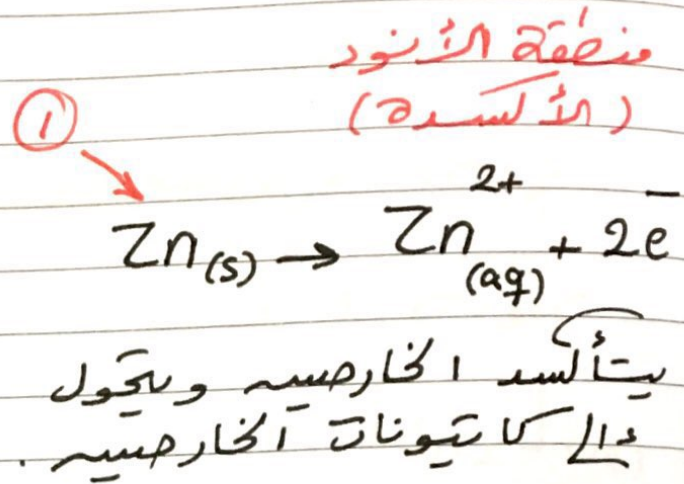 منطقة الأنود
(الأكسدة)
①
Zn(s) → Zn²⁺(aq) + 2e⁻
يتأكسد الخارصين ويتحول
إلى كاتيونات الخارصين.